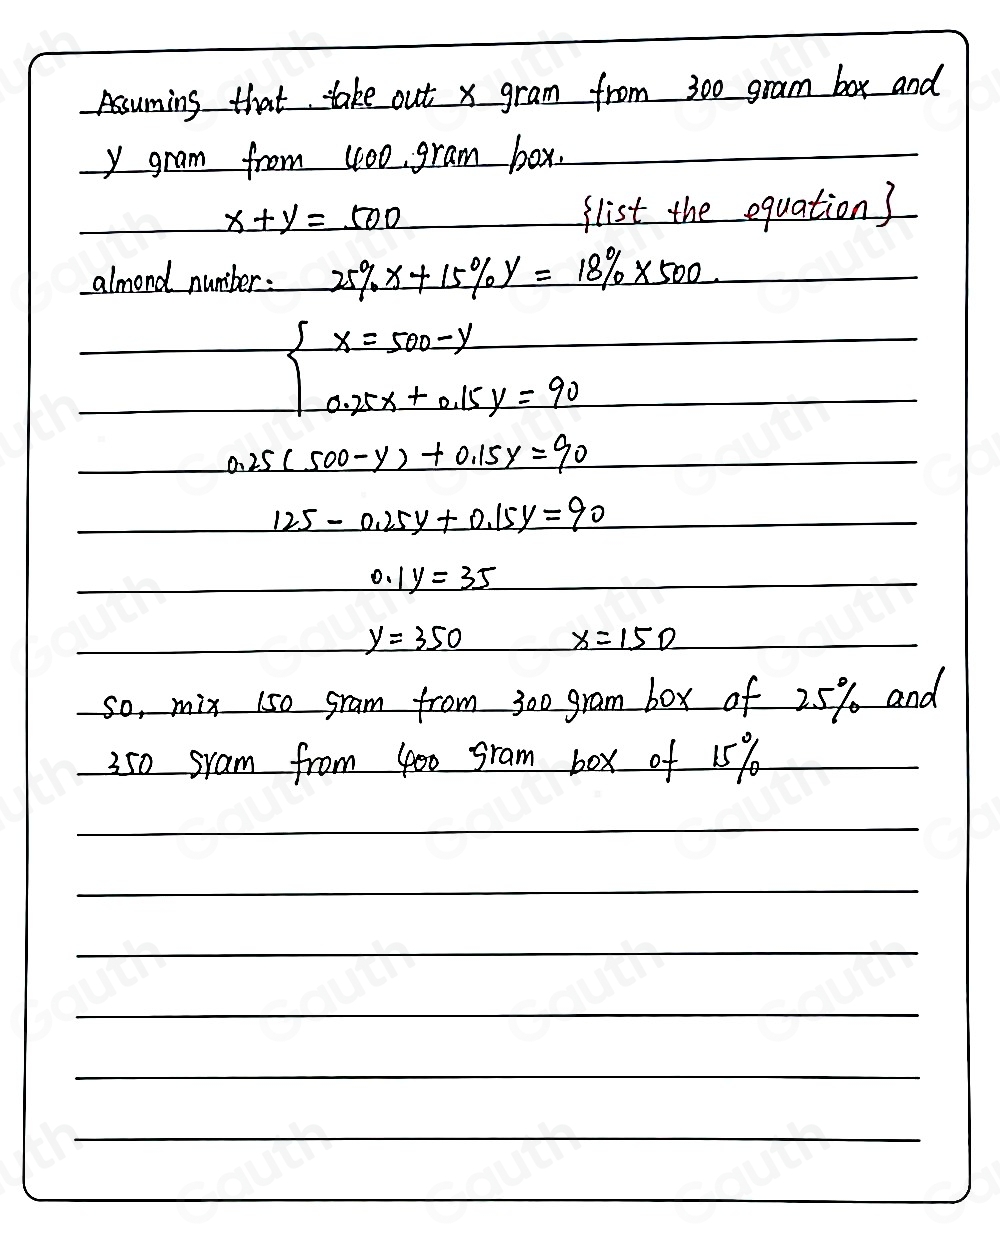 Assuming that take out x gram from 300 gram box and
y gram from 400 gram box.
x + y = 500 {list the equation}
almond number: 25% x + 15% y = 18% × 500.
{ x = 500 - y
0.25x + 0.15y = 90
0.25 ( 500 - y ) + 0.15y = 90
125 - 0.25y + 0.15y = 90
0.1y = 35
y = 350 x = 150
so, mix 150 gram from 300 gram box of 25% and
350 gram from 400 gram box of 15%